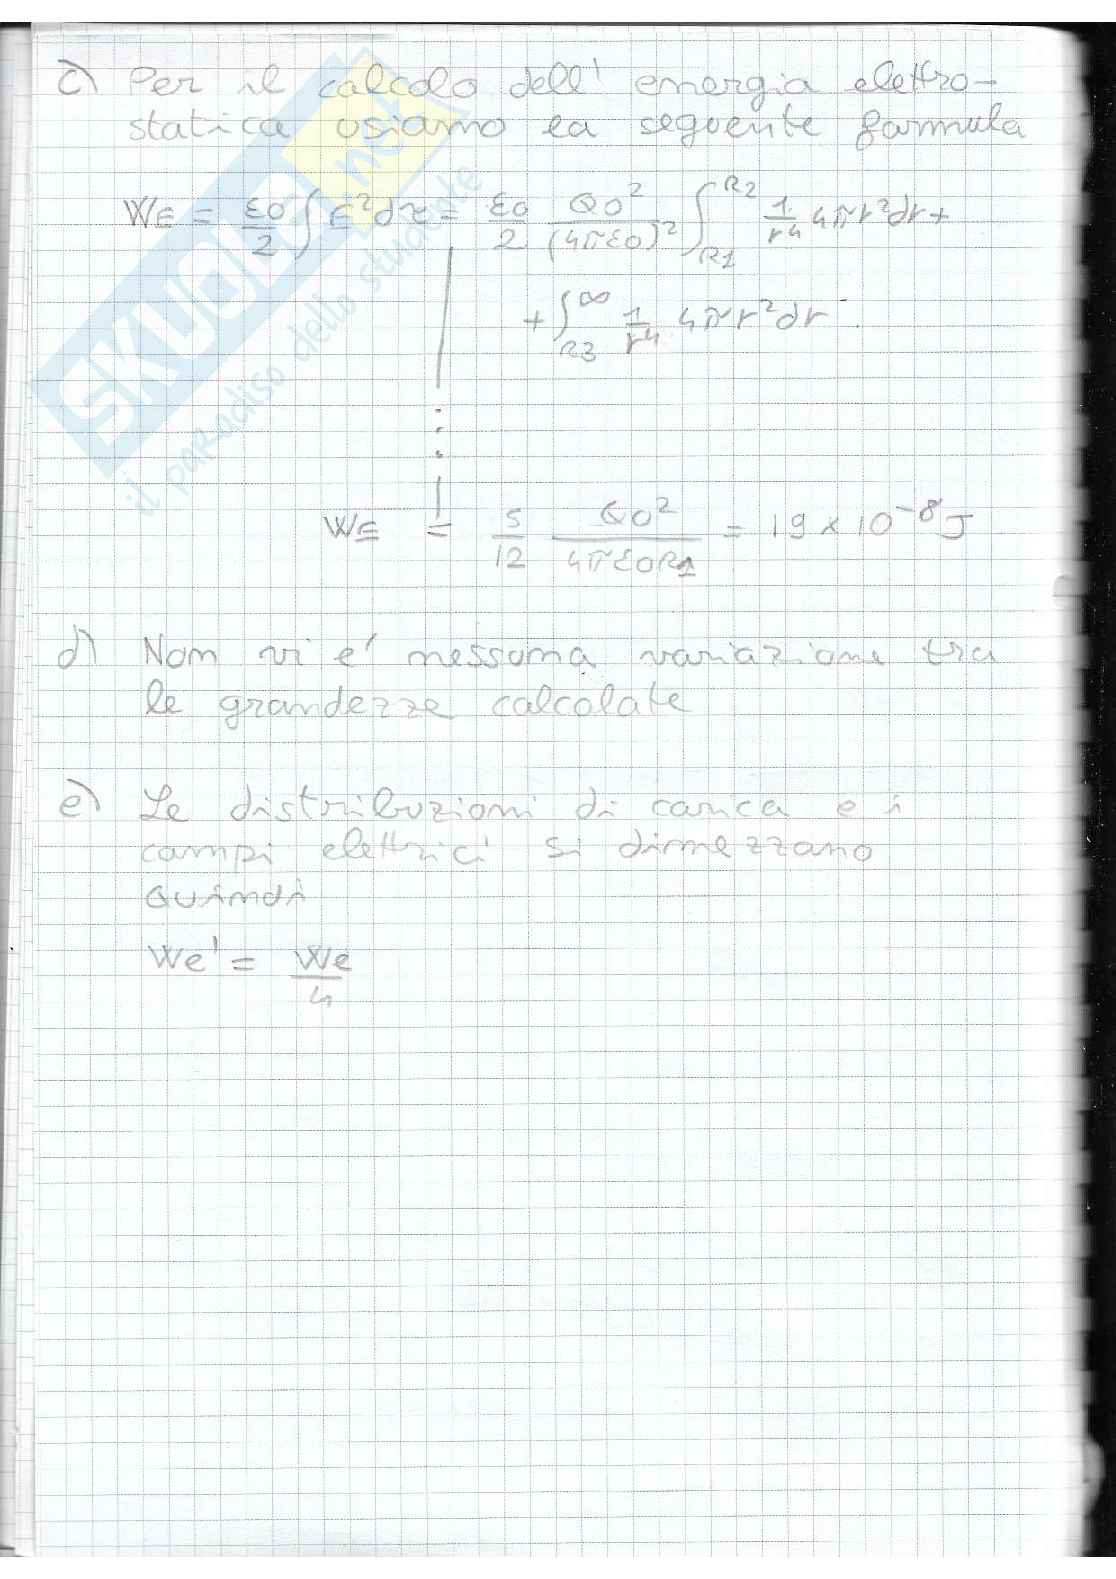 c) Per il calcolo dell' energia elettro-
statica usiamo la seguente formula
WE = ε0/2 ∫ E²dτ = ε0/2 Q0²/(4πε0)² ∫_R1^R2 1/r⁴ 4πr²dr +
+ ∫_R3^∞ 1/r⁴ 4πr²dr
WE = 5/12 Q0²/4πε0R1 = 19 x 10⁻⁸ J
d) Non vi e' nessuna variazione tra
le grandezze calcolate
e) Le distribuzioni di carica e i
campi elettrici si dimezzano
quindi
We' = We/4
SKUOLA.net
il paradiso dello studente